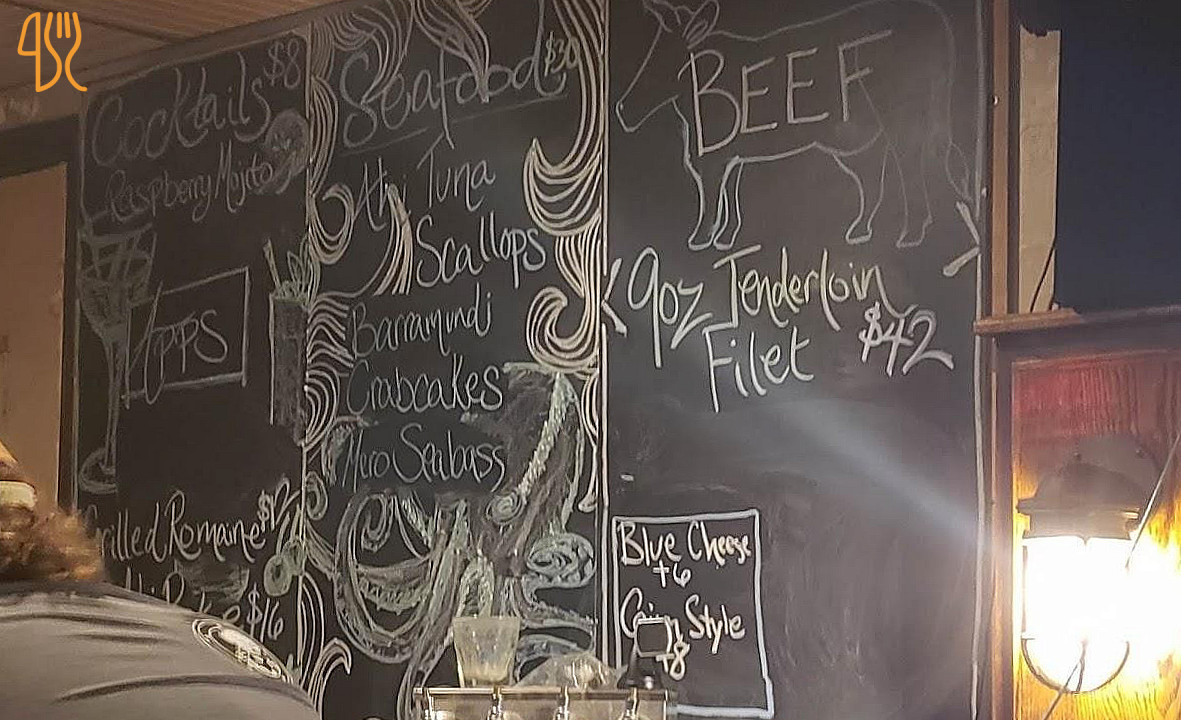 Cocktails $8
Raspberry Mojito
Apps
Grilled Romaine
$16
Seafood $30
Ahi Tuna
Scallops
Barramundi
Crabcakes
Mero Seabass
BEEF
9oz Tenderloin
Filet $42
Blue Cheese
+6
Style
+8